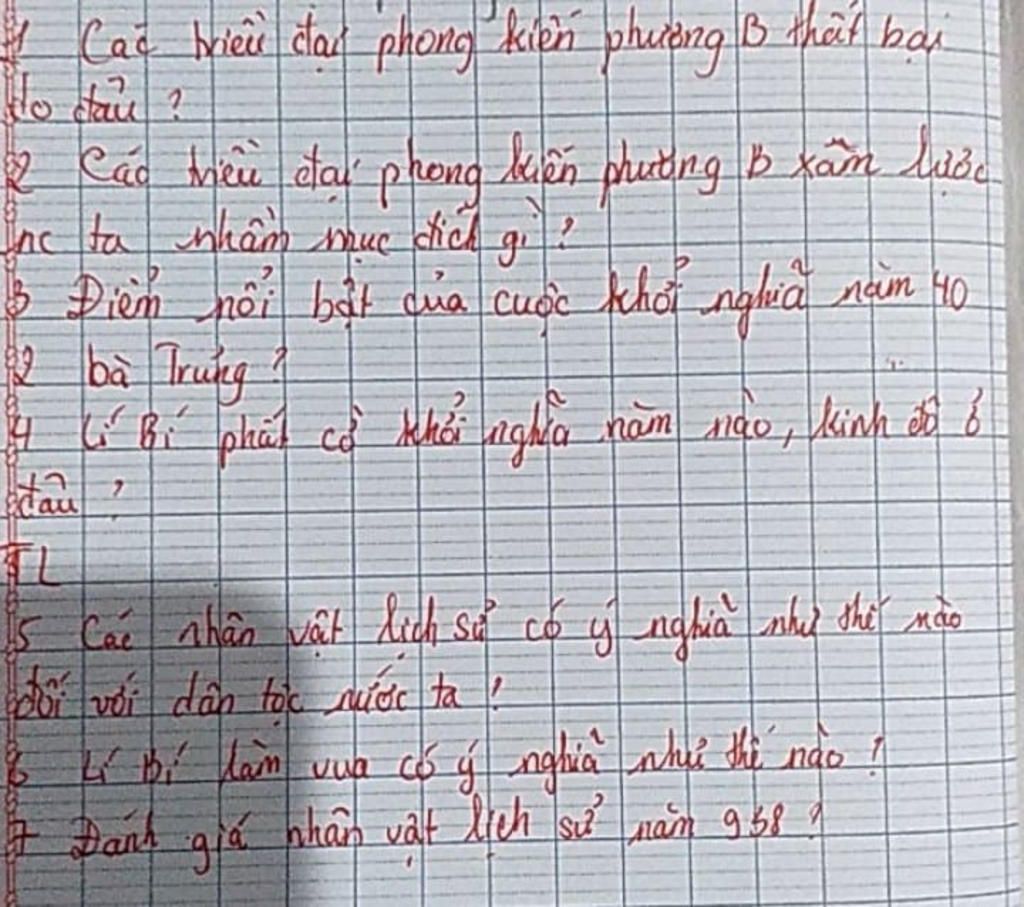 1 Các triều đại phong kiến phương B thất bại
do đâu ?
2 Các triều đại phong kiến phương B xâm lược
nc ta nhầm mục đích gì ?
3 Điểm nổi bật của cuộc khởi nghĩa năm 40
2 bà Trưng ?
4 Lí Bí phất cờ khởi nghĩa năm nào, kinh đô ở
đâu ?
TL
5 Các nhân vật lịch sử có ý nghĩa như thế nào
đối với dân tộc nước ta ?
6 Lí Bí làm vua có ý nghĩa như thế nào ?
7 Đánh giá nhân vật lịch sử năm 938 ?